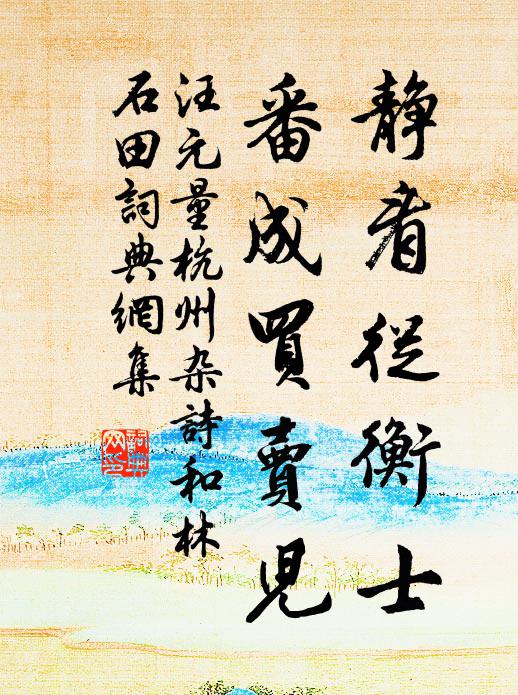 静看從衡士
番成買賣兒
汪元量杭州杂詩和林
石田詞典網集